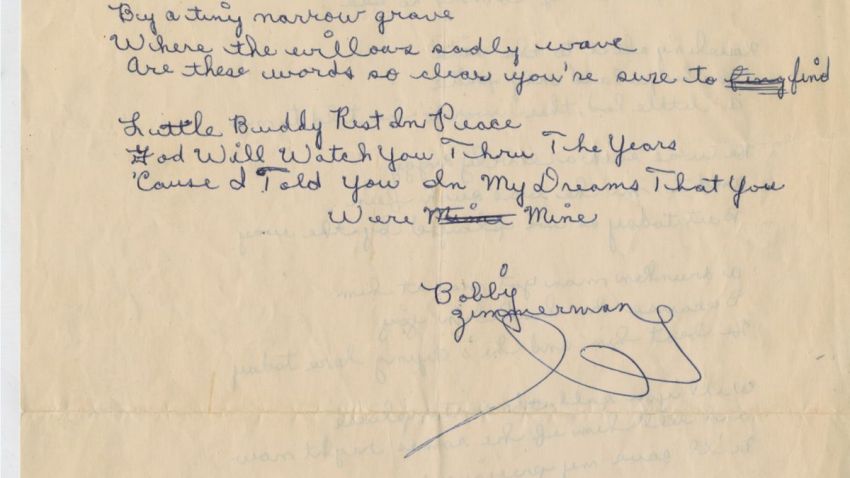 By a tiny narrow grave
Where the willows sadly wave
Are these words so clear you're sure to find
Little Buddy Rest In Peace
God Will Watch You Thru The Years
'Cause I Told You In My Dreams That You
Were Mine
Bobby
Zimmerman